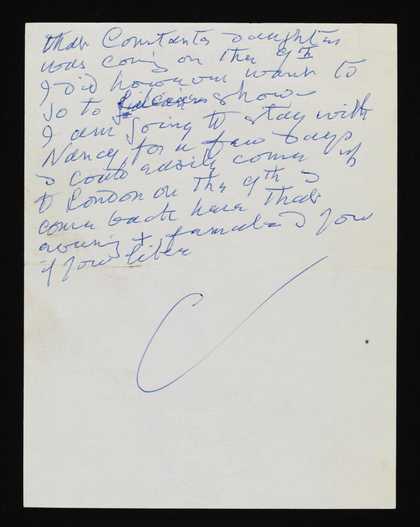 that Constants daughter
was coming on the 9th
I did however want to
go to show
I am going to stay with
Nancy for a few days
& could easily come up
to London on the 9th &
come back here that
evening + if you
if you like
C